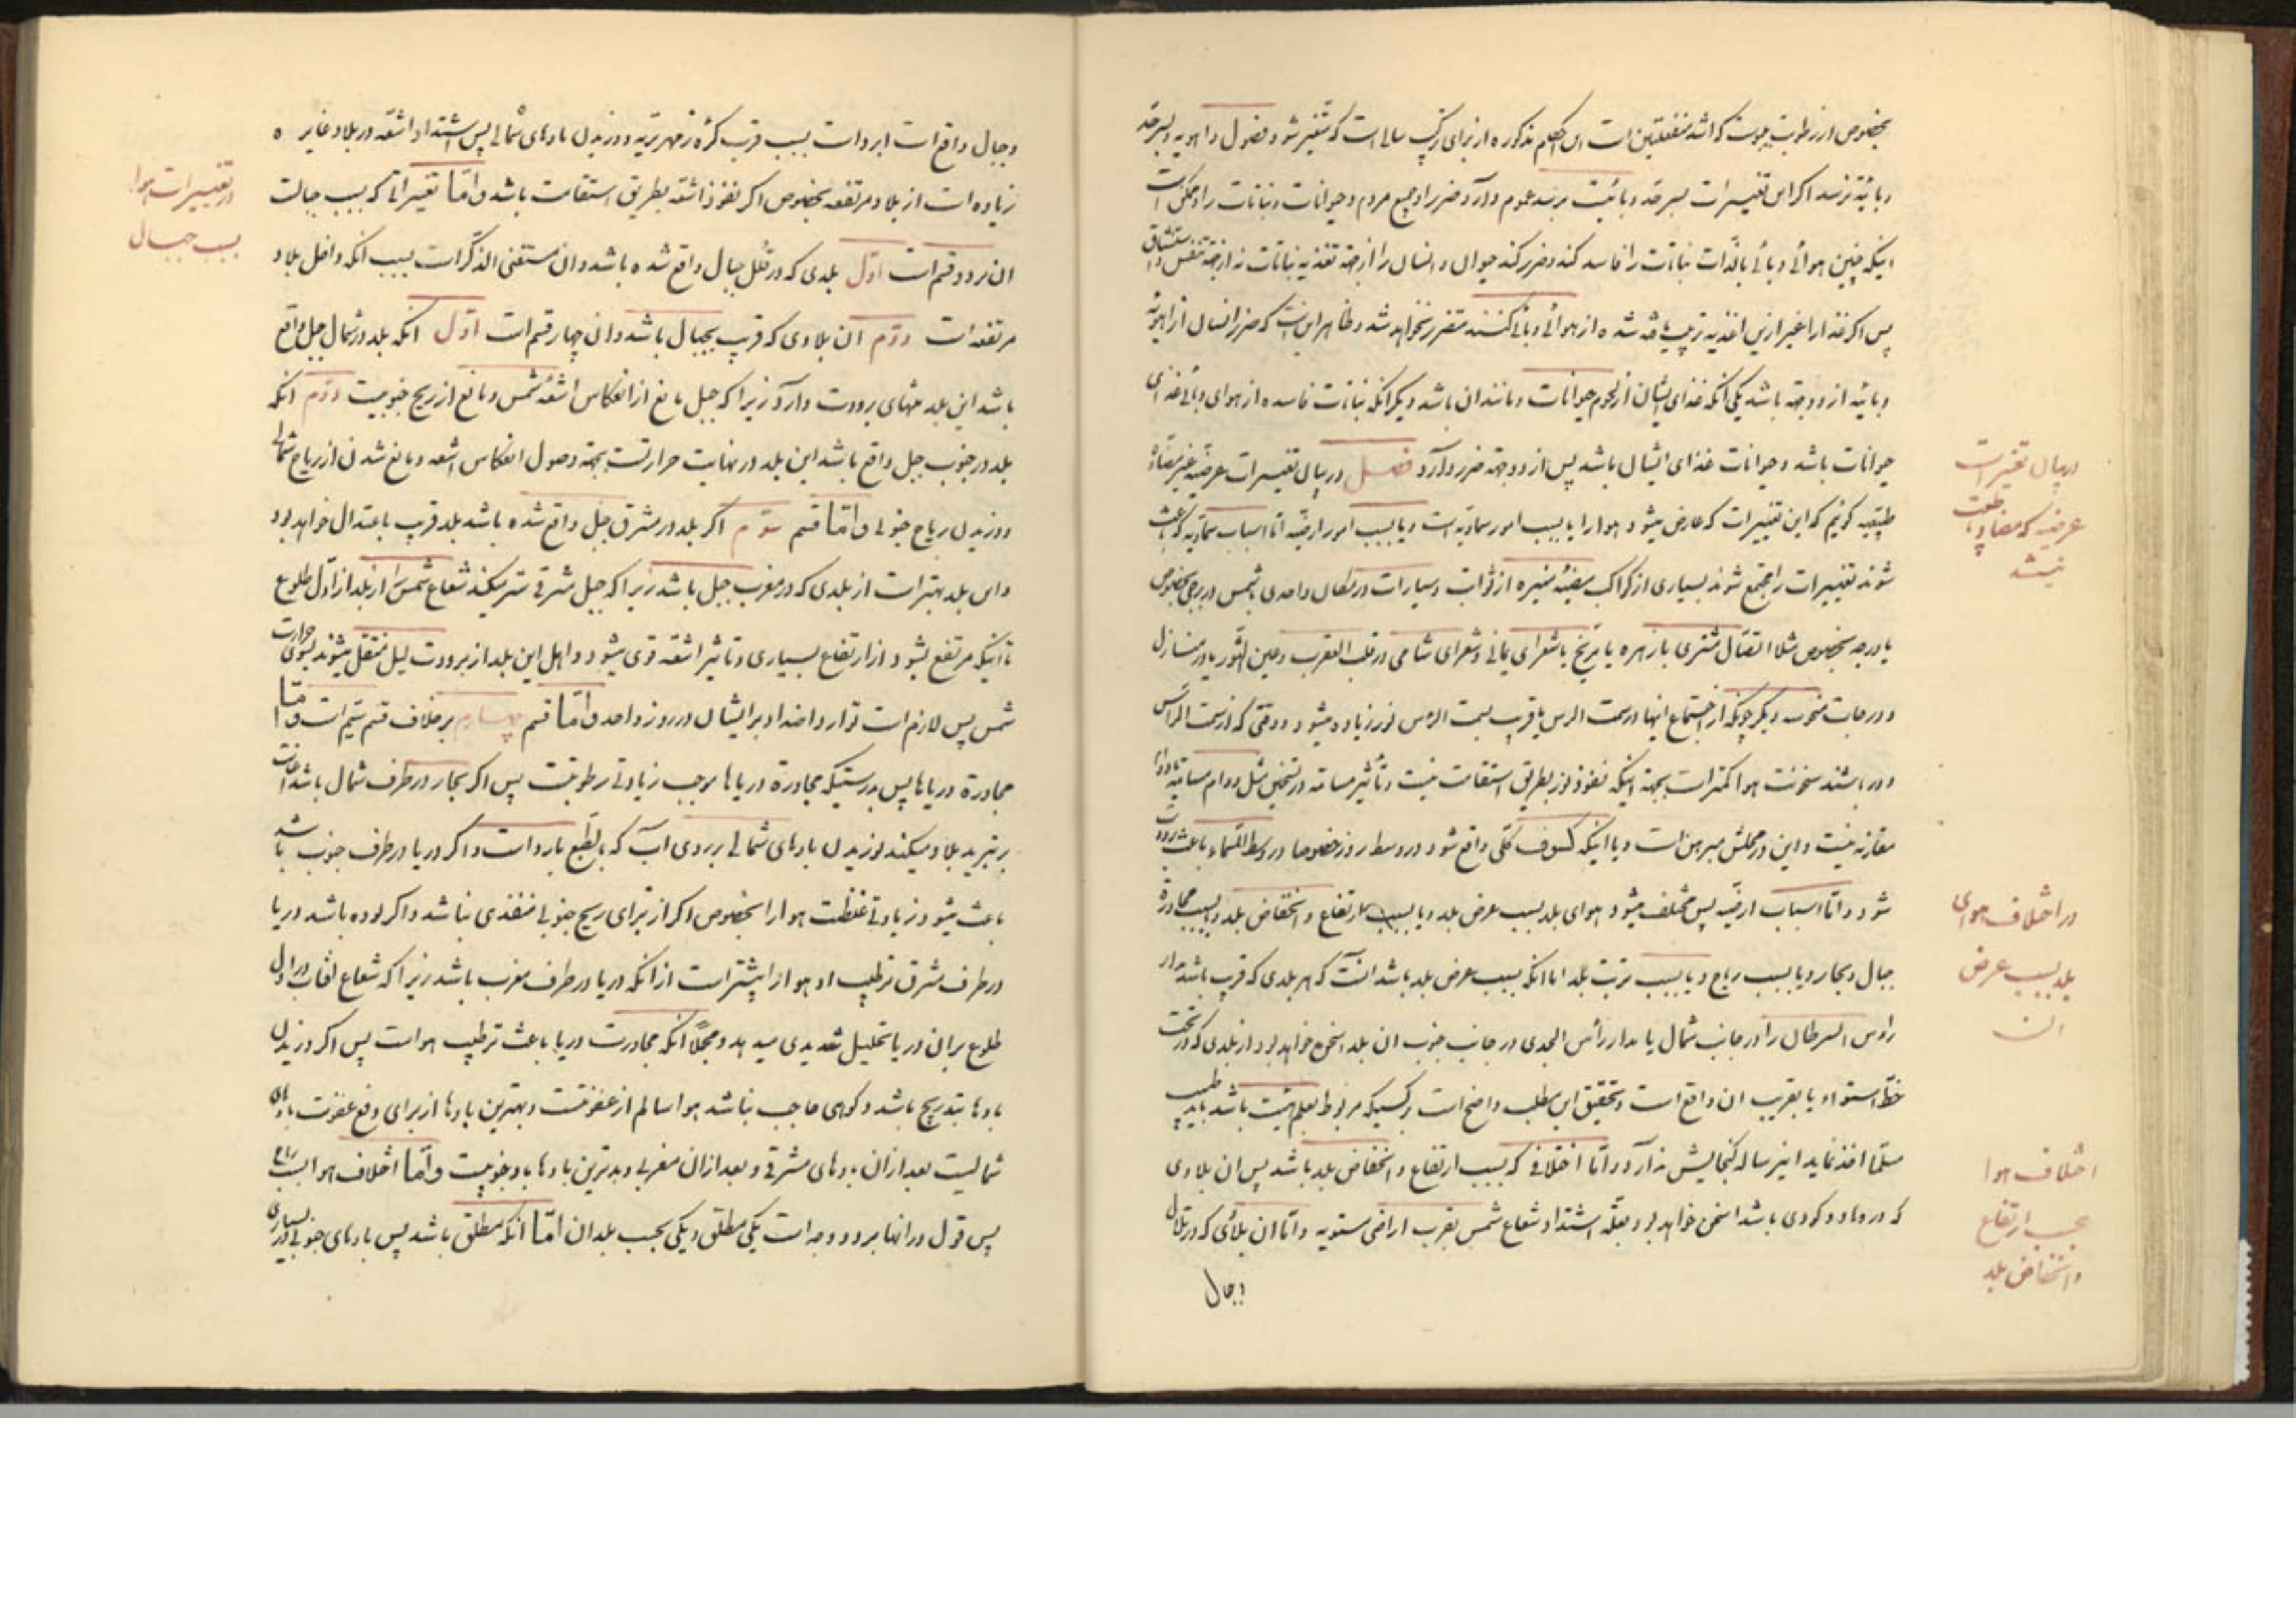 بخصوص از رطوبت که اشد منفعلتین است این احکام مذکوره از برای سالی است که متغیر شود فصول و اهویه و بسرحد
وبائیة نرسد اگر این تغییرات بسرحد وبائیت برسد عموم دارد ضرر او جمیع مردم و حیوانات و نباتات را و ممکن است
اینکه چنین هوائی وبائی بالذات نباتات را فاسد کند و ضرر کند حیوان و انسان را از جهة تغذیه نباتات نه از جهة تنفس و استنشاق
پس اگر غذا را غیر ازین اغذیه ترتیب یافته شده از هوائی وبائی کنند متضرر نخواهد شد و ظاهر این است که ضرر انسان از اهویه
وبائیه از دو جهة باشد یکی آنکه غذای ایشان از لحوم حیوانات و مانند ان باشد دیگر آنکه نباتات فاسده از هوای وبائی غذای
حیوانات باشد و حیوانات غذای ایشان باشد پس از دو جهة ضرر دارد فصل در بیان تغییرات عرضیه غیر مضاده
طبیعیه گوئیم که این تغییرات که عارض میشود هوا را یا بسبب امور سماویه است و یا بسبب امور ارضیه اما اسباب سماویه که باعث
شوند تغییرات را مجتمع شوند بسیاری از کواکب مضیئه منیره از ثوابت و سیارات در مکان واحدی با شمس در برجی بخصوص
یا درجه بخصوص مثلا اتصال مشتری با زهره یا مریخ با شعرای یمانی و شعرای شامی در قلب العقرب و عین الثور یا در منازل
و درجات منحوسه دیگر چونکه از اجتماع اینها در سمت الرأس یا قریب بسمت الرأس نور زیاده میشود و وقتی که از سمت الرأس
دور باشند سخونت هوا کمتر است بجهة اینکه نفوذ نور بطریق استقامت نیست و تأثیر مسامته در تسخین مثل دوام مسامته
مقارنه نیست و این در محلش مبرهن است و یا اینکه کسوف کلی واقع شود در وسط روز خصوصا در وسط السماء باعث برودت
شود و اما اسباب ارضیه پس مختلف میشود هوای بلد بسبب عرض بلد و یا بسبب ارتفاع و انخفاض بلد و یا بسبب مجاورة
جبال و بحار و یا بسبب ریاح و یا بسبب تربت بلد اما آنکه بسبب عرض بلد باشد آنست که هر بلدی که قریب باشد بمدار
رأس السرطان را در جانب شمال یا مدار رأس الجدی در جانب جنوب ان بلد اسخن خواهد بود از بلدی که در تحت
خط استواء یا بقریب ان واقع است و تحقیق این مطلب واضح است بر کسیکه مربوط بعلم هیئت باشد باید طبیب
مسلما اخذ نماید این رساله گنجایش ندارد و اما اختلافی که بسبب ارتفاع و انخفاض بلد باشد پس ان بلادی
که در وهاد و گودی باشد اسخن خواهد بود بعلة اشتداد شعاع شمس بقرب اراضی مستویه و اما ان بلادی که در تلال
وجبال
در بیان تغییرات
عرضیه که مضاد با طبیعت
نیستند
در اختلاف هوای
بلد بسبب عرض
ان
اختلاف هوا
بحسب ارتفاع
و انخفاض بلد
وجبال واقع است ابرد است بسبب قرب کرۀ زمهریریه و وزیدن بادهای شمالی پس اشتداد اشعه در بلاد غایره
زیاده است از بلاد مرتفعه بخصوص اگر نفوذ اشعه بطریق استقامت باشد و اما تغییراتی که بسبب جبالست
ان نیز دو قسم است اول بلدی که در قلل جبال واقع شده باشد و ان مستغنی الذکر است بسبب آنکه داخل بلاد
مرتفعه است دوم ان بلادی که قریب بجبال باشد و ان چهار قسم است اول آنکه بلد در شمال جبل واقع
باشد این بلد منتهای برودت دارد زیرا که جبل مانع از انعکاس اشعه شمس و مانع از ریح جنوبیست دوم آنکه
بلد در جنوب جبل واقع باشد این بلد در نهایت حرارتست بجهة وصول انعکاس اشعه و مانع شدن از ریاح شمالی
و وزیدن ریاح جنوبی و اما قسم سوم اگر بلد در مشرق جبل واقع شده باشد بلد قریب باعتدال خواهد بود
و این بلد بهتر است از بلدی که در مغرب جبل باشد زیرا که جبل شرقی ستر میکند شعاع شمس را از بلد از اول طلوع
تا اینکه مرتفع بشود از ارتفاع بسیاری و تاثیر اشعه قوی میشود و اهل این بلد از برودت لیل منتقل میشوند بسوی حرارت
شمس پس لازم است توارد اضداد بر ایشان در روز واحد و اما قسم چهارم برخلاف قسم سیم است و اما
مجاورة دریاها پس بدرستیکه مجاورة دریاها موجب زیادتی رطوبتست پس اگر بحار در طرف شمال باشد اعانت
بر تبرید بلاد میکند بوزیدن بادهای شمالی بر روی آب که بالطبع بارد است و اگر دریا در طرف جنوب باشد
باعث میشود زیادتی غلظت هوا را بخصوص اگر از برای ریح جنوبی منفذی نباشد و اگر بوده باشد دریا
در طرف مشرق ترطیب او هوا را بیشتر است از آنکه دریا در طرف مغرب باشد زیرا که شعاع آفتاب در اول
طلوع بر ان دریا تحلیل شدیدی میدهد و مجملا آنکه مجاورت دریا باعث ترطیب هواست پس اگر وزیدن
بادها بتدریج باشد و کوهی حاجب نباشد هوا سالم از عفونتست و بهترین بادها از برای دفع عفونت بادهای
شمالیست بعد از ان بادهای مشرقی و بعد از ان مغربی و بدترین بادها باد جنوبیست و اما اختلاف هوا بسبب ریاح
پس قول در آنها بر دو وجه است یکی مطلق و یکی بحسب بلدان اما آنکه مطلق باشد پس بادهای جنوبی در بسیاری
در تغییرات هوا
بسبب جبال